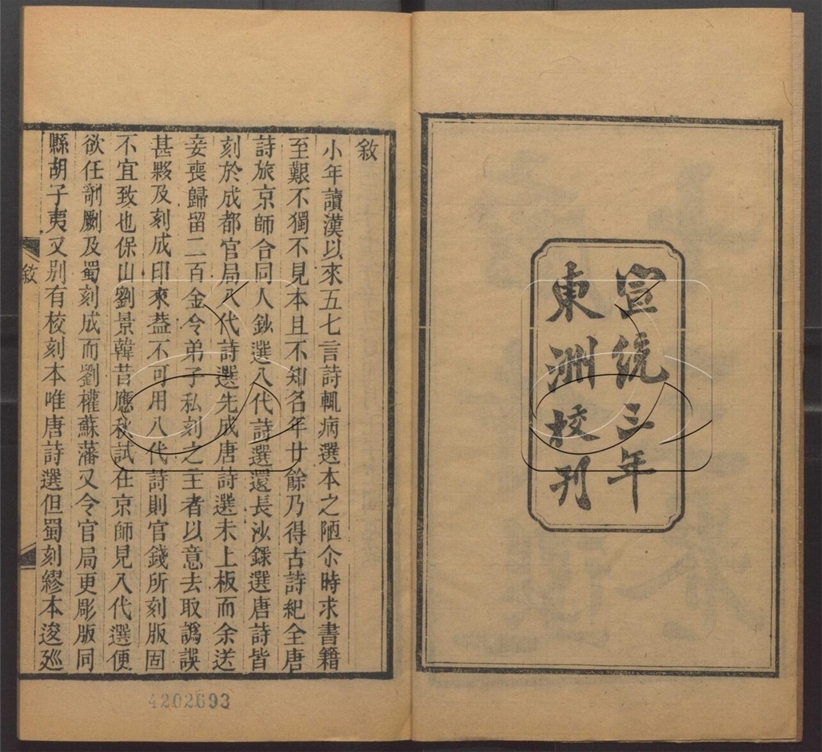 宣統三年
東洲校刊
敘
小年讀漢以來五七言詩輒病選本之陋尒時求書籍
至艱不獨不見本且不知名年廿餘乃得古詩紀全唐
詩旅京師合同人鈔選八代詩選還長沙錄選唐詩皆
刻於成都官局八代詩選先成唐詩選未上板而余送
妾喪歸留二百金令弟子私刻之主者以意去取譌誤
甚夥及刻成印來葢不可用八代詩則官錢所刻版固
不宜致也保山劉景韓昔應秋試在京師見八代選便
欲任剞劂及蜀刻成而劉權蘇藩又令官局更彫版同
縣胡子夷又別有校刻本唯唐詩選但蜀刻繆本逡廵
敘
4202693